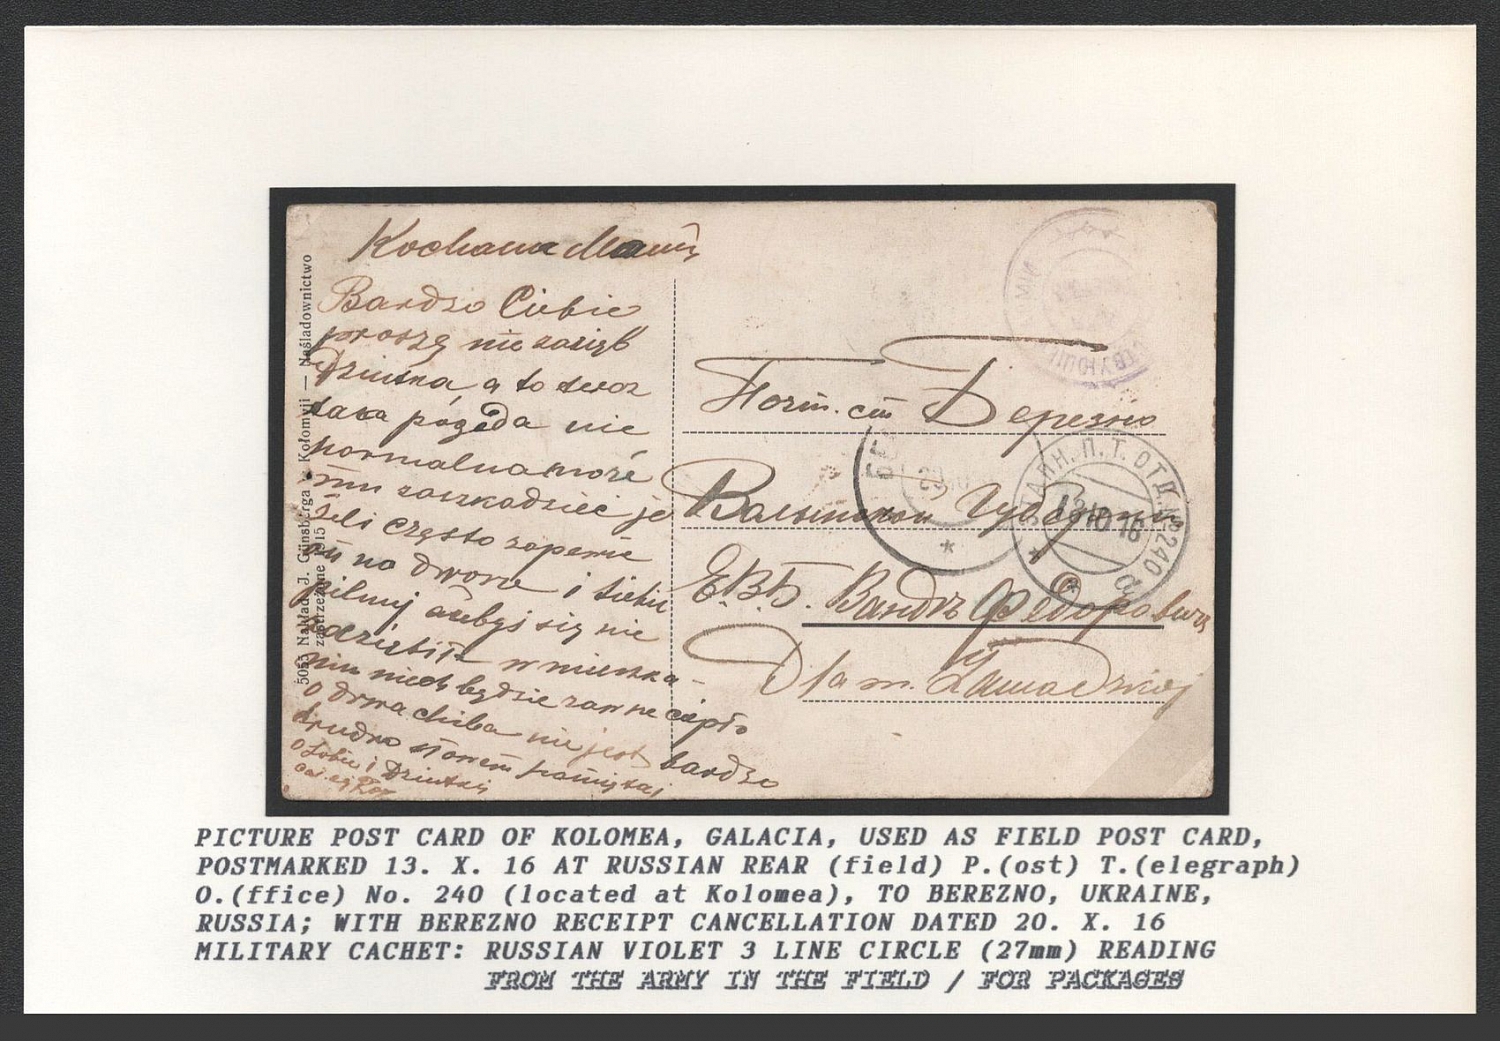 Kochana
Bardzo Ciebie
proszę nie zazięb
Dziutka a to teraz
taka pogoda nie
normalna może
mu zaszkodzieć je
żeli często
na dworze i
pilnuj ażebyś się nie
zaziębiła w mieszka-
niu niech będzie zawsze ciepło
o drwa chiba nie jest bardzo
trudno pamiętaj
o Tobie i Dziutki
5053 Nakład J. Günsberga • Kołomyji — Naśladownictwo
zastrzeżone 1915
МИ
СТВУЮЩ
Почт. ст Березно
Волынской Губернии
БЕ
20
ЭТАПН. П. Т. ОТД. № 240
13 10 16
а
Е.В.Б. Вандѣ Федорович
Dla m. Zawadzkiej
PICTURE POST CARD OF KOLOMEA, GALACIA, USED AS FIELD POST CARD,
POSTMARKED 13. X. 16 AT RUSSIAN REAR (field) P.(ost) T.(elegraph)
O.(ffice) No. 240 (located at Kolomea), TO BEREZNO, UKRAINE,
RUSSIA; WITH BEREZNO RECEIPT CANCELLATION DATED 20. X. 16
MILITARY CACHET: RUSSIAN VIOLET 3 LINE CIRCLE (27mm) READING
FROM THE ARMY IN THE FIELD / FOR PACKAGES